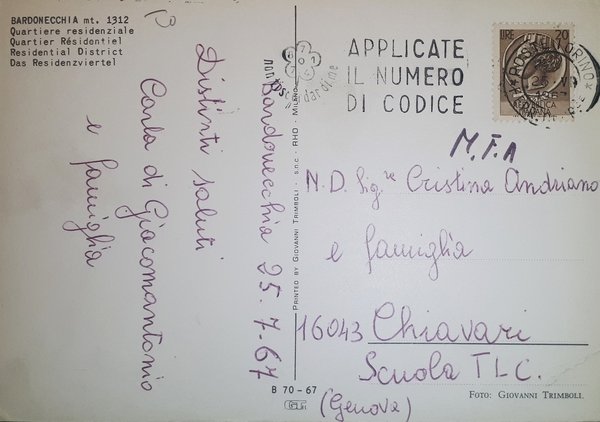 BARDONECCHIA mt. 1312
Quartiere residenziale
Quartier Résidentiel
Residential District
Das Residenzviertel
Bardonecchia 25.7.67
Distinti saluti
Carla di Giacomantonio
e famiglia
PRINTED BY GIOVANNI TRIMBOLI - s.n.c. - RHO - MILANO
APPLICATE
IL NUMERO
DI CODICE
LIRE 20
M.F.A
N.D. Sig.re Cristina Andriano
e famiglia
16043 Chiavari
Scuola TLC.
(Genova)
B 70 - 67
FOTO: GIOVANNI TRIMBOLI.